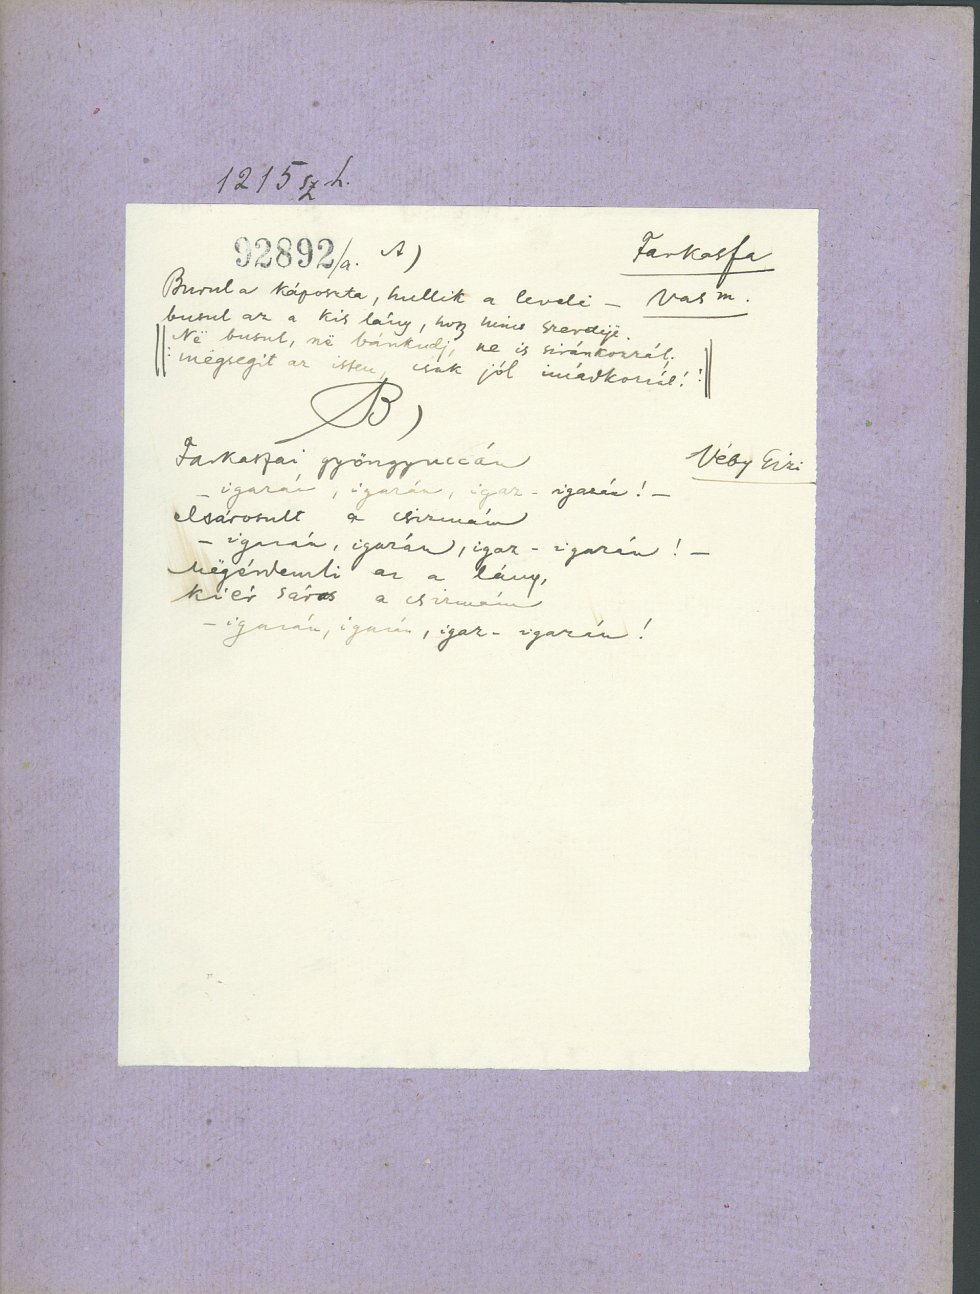 1215 sz h.
92892/a. A) Farkasfa
Busul a káposzta, hullik a levele — Vas m.
busul az a kis lány, hogy nincs szeretője.
Në busul, në bánkudj, ne is siránkozzál.
mégsegit az isten, csak jól imádkozzál!
B)
Farkasfai gyöngyuccán Véby Gizi
— igazán, igazán, igaz - igazán! —
elsárosult a csizmám
— igazán, igazán, igaz - igazán! —
Mëgérdemli az a lány,
kiér sáros a csizmám
— igazán, igazán, igaz - igazán!